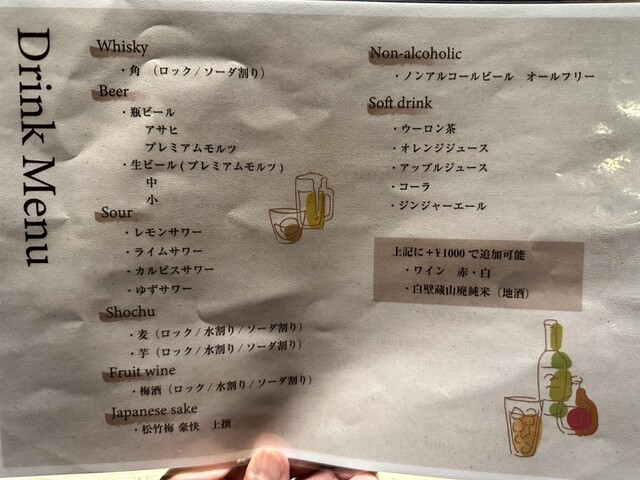 Drink Menu
Whisky
・角 （ロック/ソーダ割り）
Beer
・瓶ビール
アサヒ
プレミアムモルツ
・生ビール(プレミアムモルツ)
中
小
Sour
・レモンサワー
・ライムサワー
・カルピスサワー
・ゆずサワー
Shochu
・麦（ロック/水割り/ソーダ割り）
・芋（ロック/水割り/ソーダ割り）
Fruit wine
・梅酒（ロック/水割り/ソーダ割り）
Japanese sake
・松竹梅 豪快 上撰
Non-alcoholic
・ノンアルコールビール オールフリー
Soft drink
・ウーロン茶
・オレンジジュース
・アップルジュース
・コーラ
・ジンジャーエール
上記に＋¥1000で追加可能
・ワイン 赤・白
・白壁蔵山廃純米（地酒）